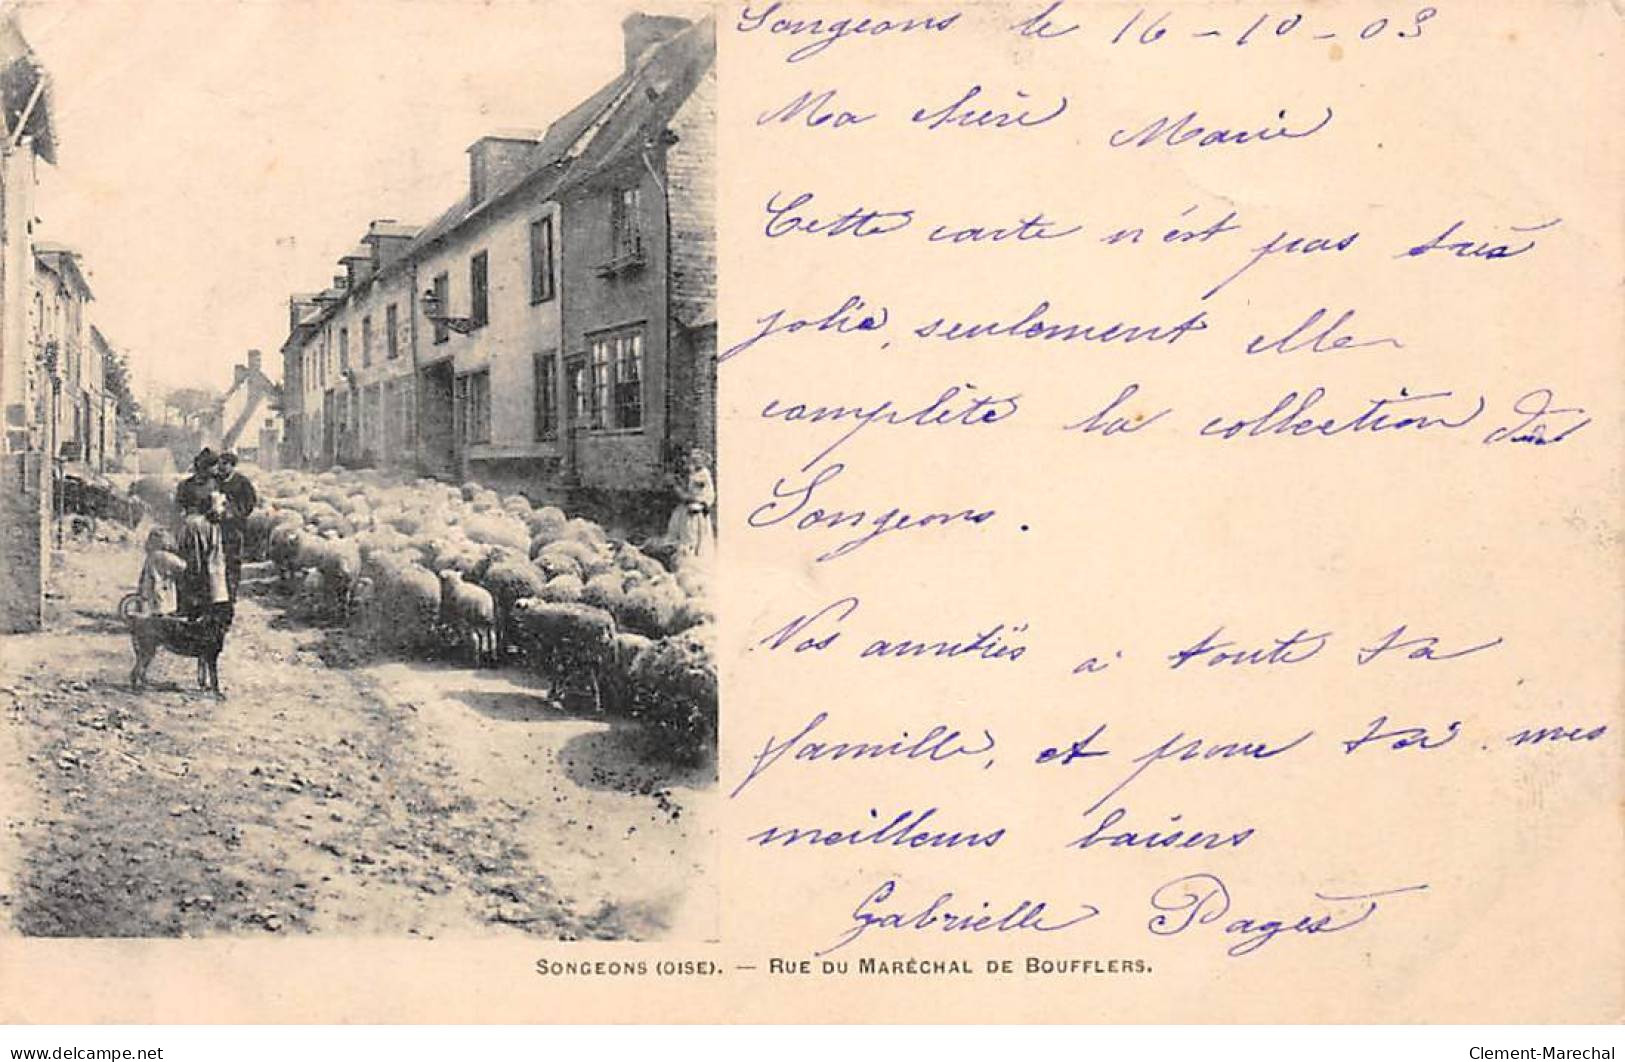 Songeons le 16-10-03
Ma chère Marie
Cette carte n'est pas très
jolie, seulement elle
complète la collection de
Songeons.
Nos amitiés à toute ta
famille, et pour toi mes
meilleurs baisers
Gabrielle Pagès
SONGEONS (OISE). — RUE DU MARÉCHAL DE BOUFFLERS.
delcampe.net
Clement-Marechal